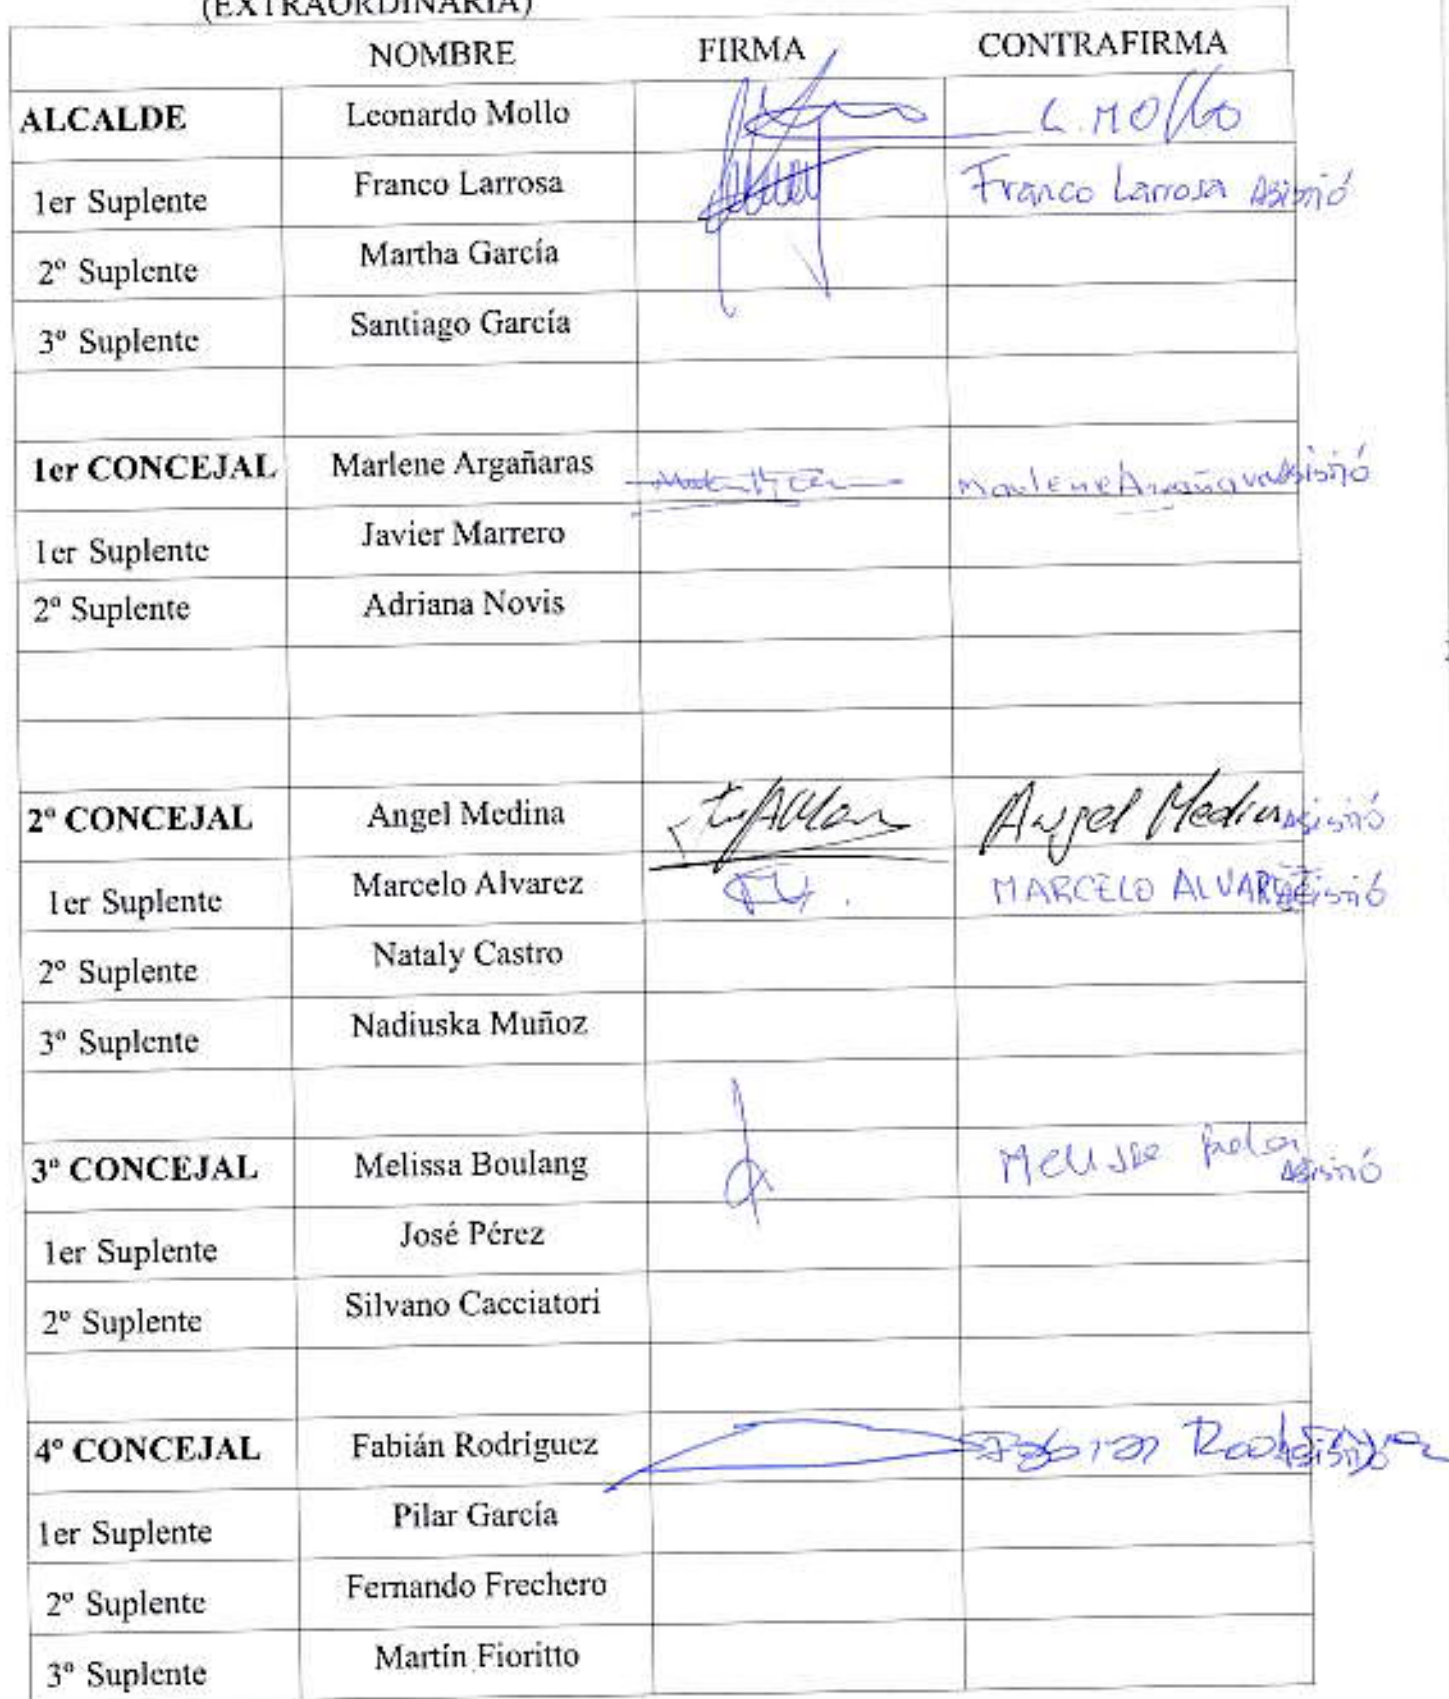 (EXTRAORDINARIA)
NOMBRE FIRMA CONTRAFIRMA
ALCALDE Leonardo Mollo L. MOllo
1er Suplente Franco Larrosa Franco Larrosa Asistió
2º Suplente Martha García
3º Suplente Santiago García
1er CONCEJAL Marlene Argañaras Marlene Asistió
1er Suplente Javier Marrero
2º Suplente Adriana Novis
2º CONCEJAL Angel Medina Angel Medina Asistió
1er Suplente Marcelo Alvarez MARCELO ALVAREZ Asistió
2º Suplente Nataly Castro
3º Suplente Nadiuska Muñoz
3º CONCEJAL Melissa Boulang Asistió
1er Suplente José Pérez
2º Suplente Silvano Cacciatori
4º CONCEJAL Fabián Rodríguez Fabian Asistió
1er Suplente Pilar García
2º Suplente Fernando Frechero
3º Suplente Martín Fioritto